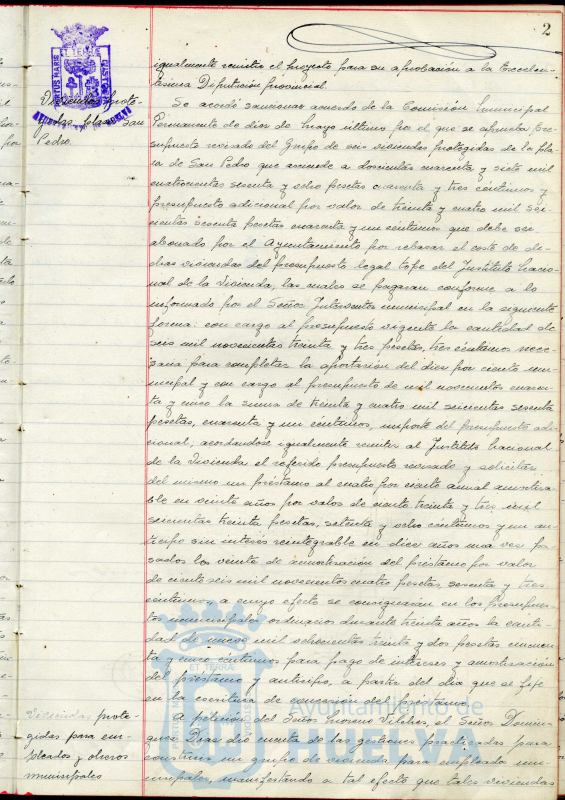 2
igualmente remitir el proyecto para su aprobación a la Excelen-
tísima Diputación provincial.
Viviendas prote-
gidas plaza San
Pedro.
Se acordó sancionar acuerdo de la Comisión Municipal
Permanente de diez de Mayo último por el que se aprueba pre-
supuesto revisado del Grupo de seis viviendas protegidas de la pla-
za de San Pedro que asciende a doscientas cuarenta y siete mil
cuatrocientas sesenta y ocho pesetas cuarenta y tres céntimos y
presupuesto adicional por valor de treinta y cuatro mil sei-
cientas sesenta pesetas cuarenta y un céntimos que debe ser
abonado por el Ayuntamiento por rebasar el coste de di-
chas viviendas del presupuesto legal tope del Instituto Nacio-
nal de la Vivienda, las cuales se pagarán conforme a lo
informado por el Señor Interventor municipal en la siguiente
forma: con cargo al presupuesto vigente la cantidad de
seis mil novecientas treinta y tres pesetas, tres céntimos nece-
saria para completar la aportación del diez por ciento mu-
nicipal y con cargo al presupuesto de mil novecientos cuaren-
ta y cinco la suma de treinta y cuatro mil seiscientas sesenta
pesetas, cuarenta y un céntimos, importe del presupuesto adi-
cional, acordándose igualmente remitir al Instituto Nacional
de la Vivienda el referido presupuesto revisado y solicitar
del mismo un préstamo al cuatro por ciento anual amortiza-
ble en veinte años por valor de ciento treinta y tres mil
seiscientas treinta pesetas, setenta y ocho céntimos y un an-
ticipo sin interés reintegrable en diez años una vez pa-
sados los veinte de amortización del préstamo por valor
de ciento seis mil novecientos cuatro pesetas, sesenta y tres
céntimos, a cuyo efecto se consignarán en los Presupues-
tos municipales ordinarios durante treinta años la canti-
dad de nueve mil ochocientas treinta y dos pesetas cincuen-
ta y cinco céntimos para pago de intereses y amortización
del préstamo y anticipo, a partir del día que se fije
en la escritura de concesión del préstamo.
Viviendas prote-
gidas para em-
pleados y obreros
municipales
A petición del Señor Moreno Vilches, el Señor Domín-
guez Díaz dio cuenta de las gestiones practicadas para
construir un grupo de vivienda para empleado mu-
nicipales, manifestando a tal efecto que tales viviendas
Ayuntamiento de
HUELVA